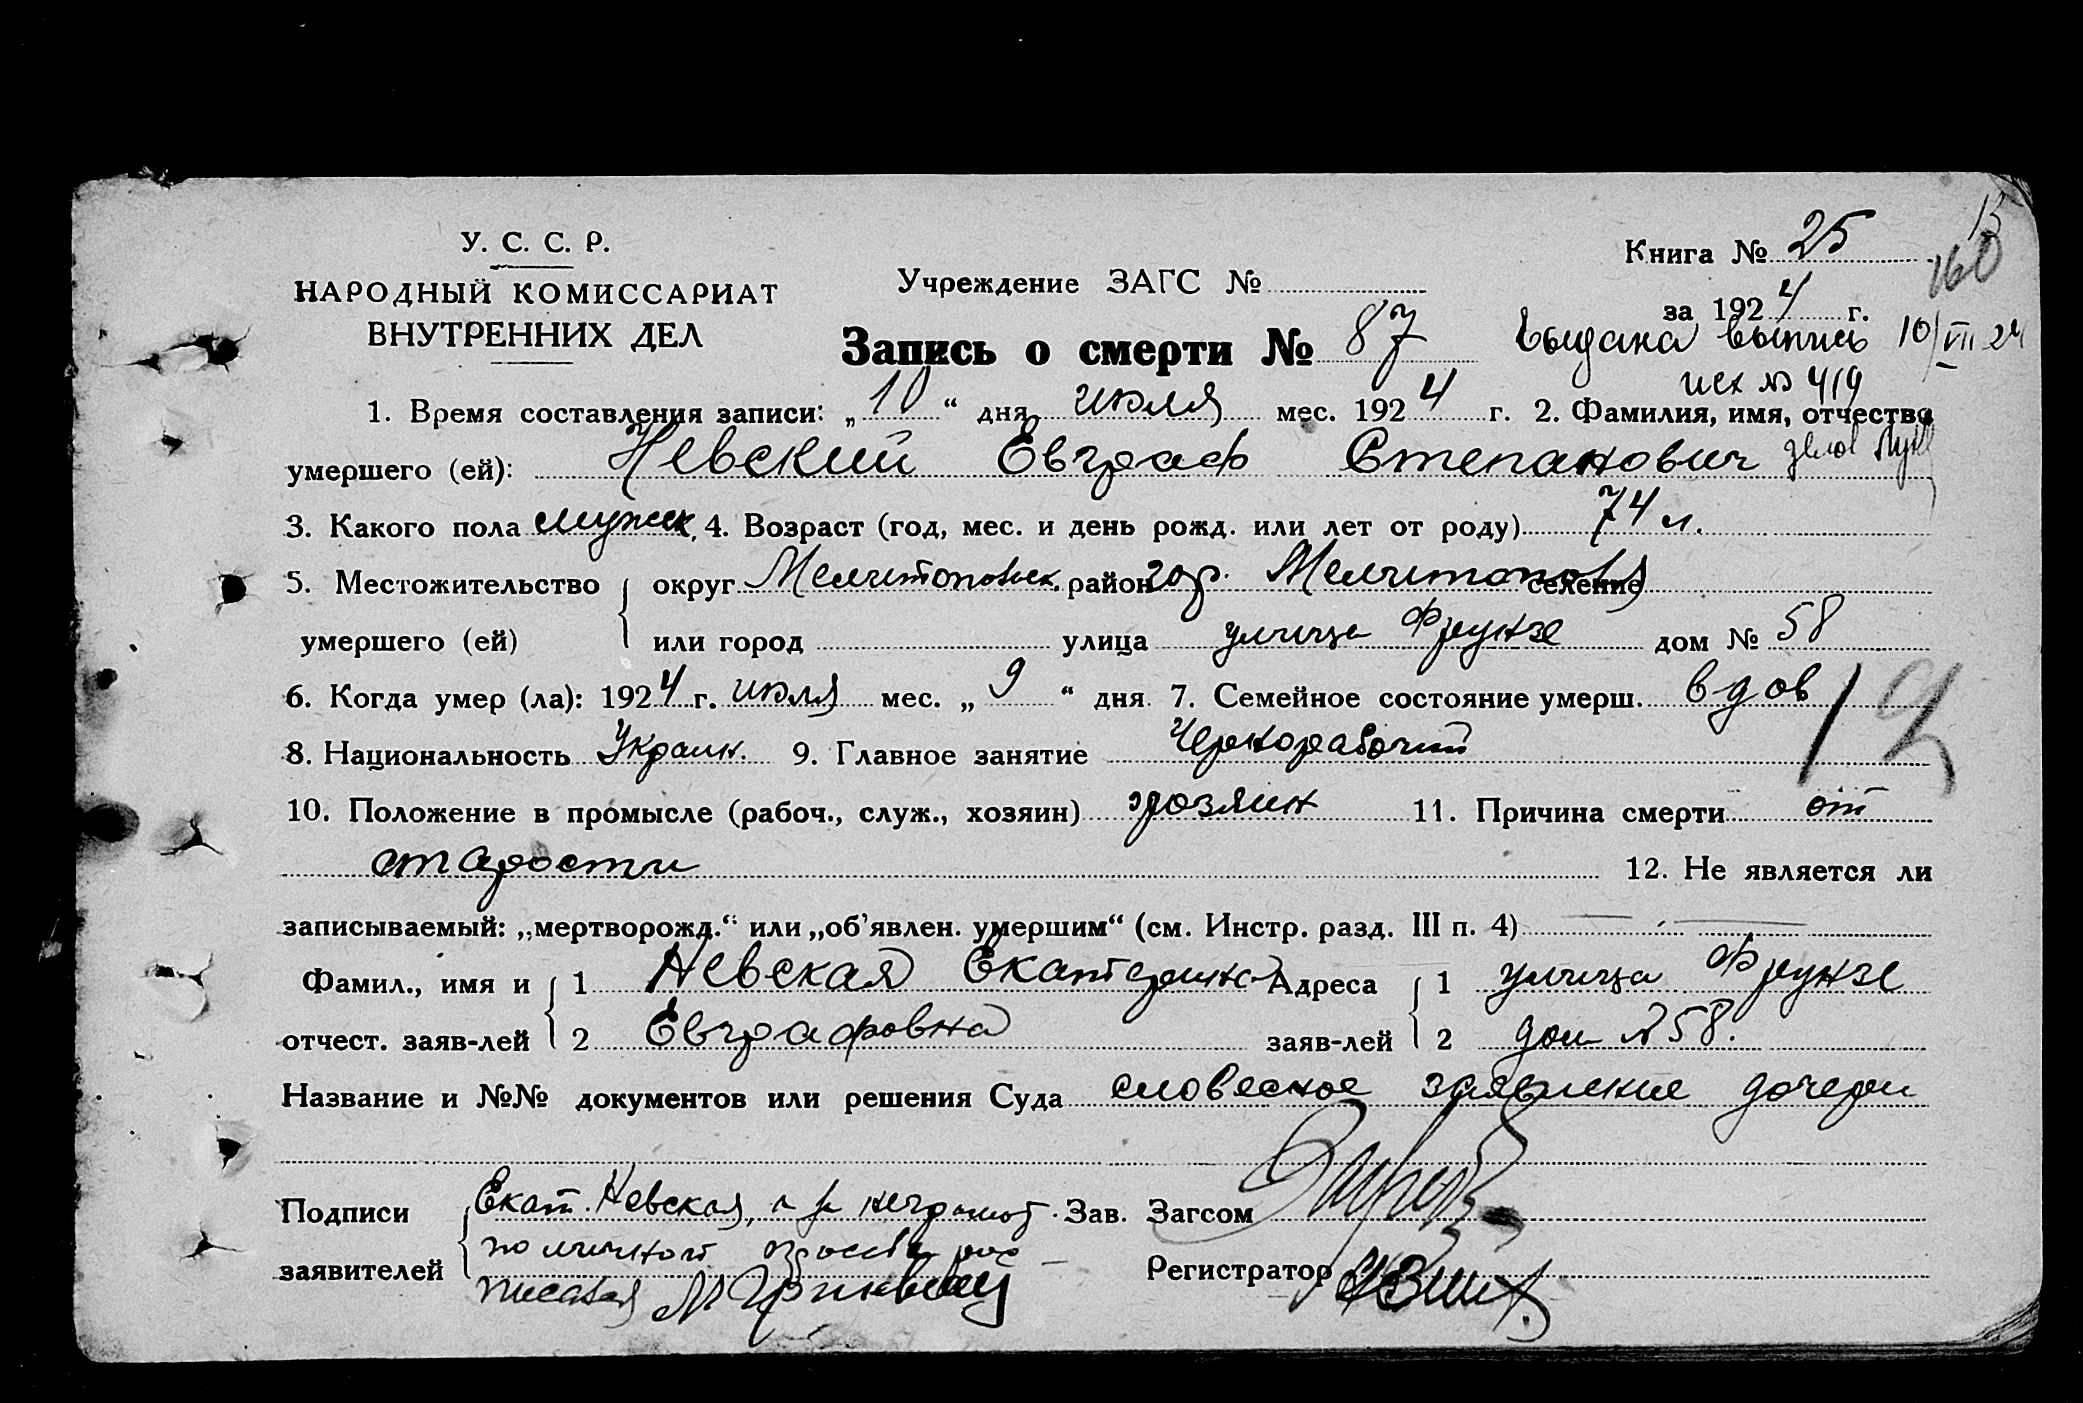 15
160
У. С. С. Р.
НАРОДНЫЙ КОМИССАРИАТ
ВНУТРЕННИХ ДЕЛ
Учреждение ЗАГС №
Книга № 25
за 1924 г.
Запись о смерти № 87
Выдана выпись 10/VII 24
исх № 419
1. Время составления записи: „10“ дня июля мес. 1924 г. 2. Фамилия, имя, отчество
умершего (ей): Невский Евграф Степанович
3. Какого пола мужск, 4. Возраст (год, мес. и день рожд. или лет от роду) 74 л.
5. Местожительство округ Мелитопольск. район гор. Мелитополь селение
умершего (ей) или город улица улица Фрунзе дом № 58
6. Когда умер (ла): 1924 г. июля мес. „9“ дня. 7. Семейное состояние умерш. вдов
12
8. Национальность Украин. 9. Главное занятие Чернорабочий
10. Положение в промысле (рабоч., служ., хозяин) хозяин 11. Причина смерти от
старости 12. Не является ли
записываемый: „мертворожд.“ или „об'явлен. умершим“ (см. Инстр. разд. III п. 4)
Фамил., имя и 1 Невская Екатерина Адреса 1 улица Фрунзе
отчест. заяв-лей 2 Евграфовна заяв-лей 2 дом № 58.
Название и №№ документов или решения Суда словесное заявление дочери
Подписи Екат. Невская, а за неграмот. Зав. Загсом
по личной просьбе рос
заявителей Регистратор